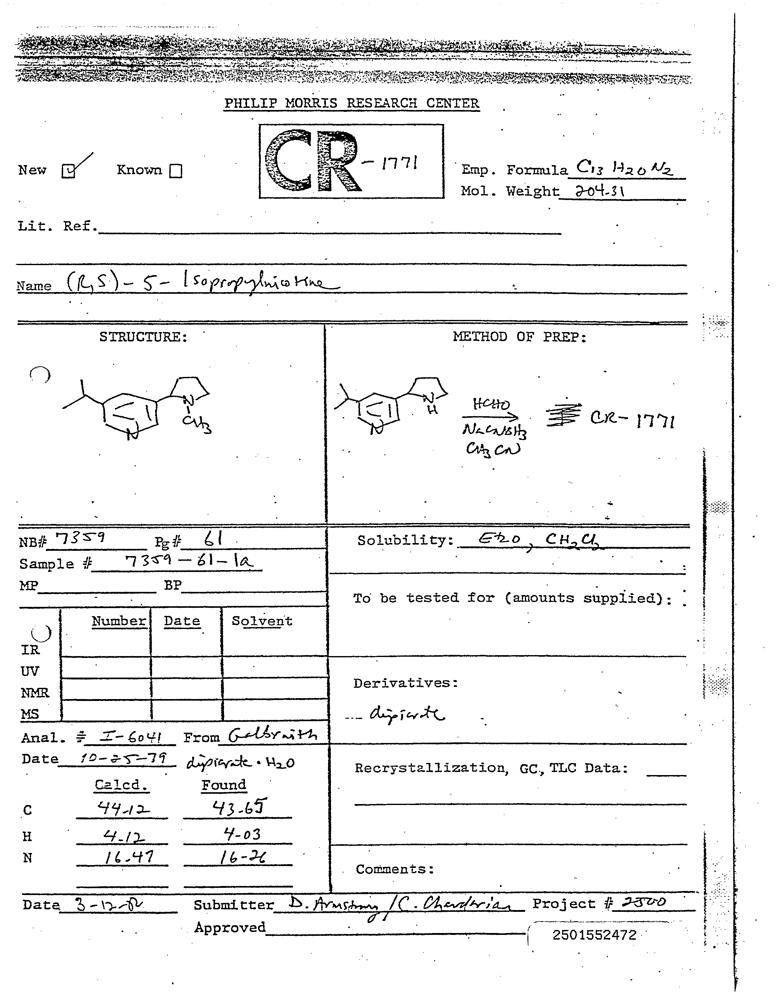 PHILIP MORRIS RESEARCH CENTER
CR - 1771
New ☑ Known ☐
Emp. Formula C13 H20 N2
Mol. Weight 204.31
Lit. Ref.
Name (R,S) - 5 - Isopropylnicotine
STRUCTURE:
METHOD OF PREP:
N
N
CH3
N
N
H
HCHO
NaCNBH3
CH3CN
CR - 1771
NB# 7359 Pg# 61
Sample # 7359 - 61 - 1a
MP BP
Number Date Solvent
IR
UV
NMR
MS
Anal. # I-6041 From Galbraith
Date 10-25-79 dipicrate · H2O
Calcd. Found
C 44.12 43.65
H 4.12 4.03
N 16.47 16.26
Solubility: Et2O, CH2Cl2
To be tested for (amounts supplied):
Derivatives:
dipicrate
Recrystallization, GC, TLC Data:
Comments:
Date 3-12-82 Submitter D. Armstrong / C. Project # 2500
Approved
2501552472